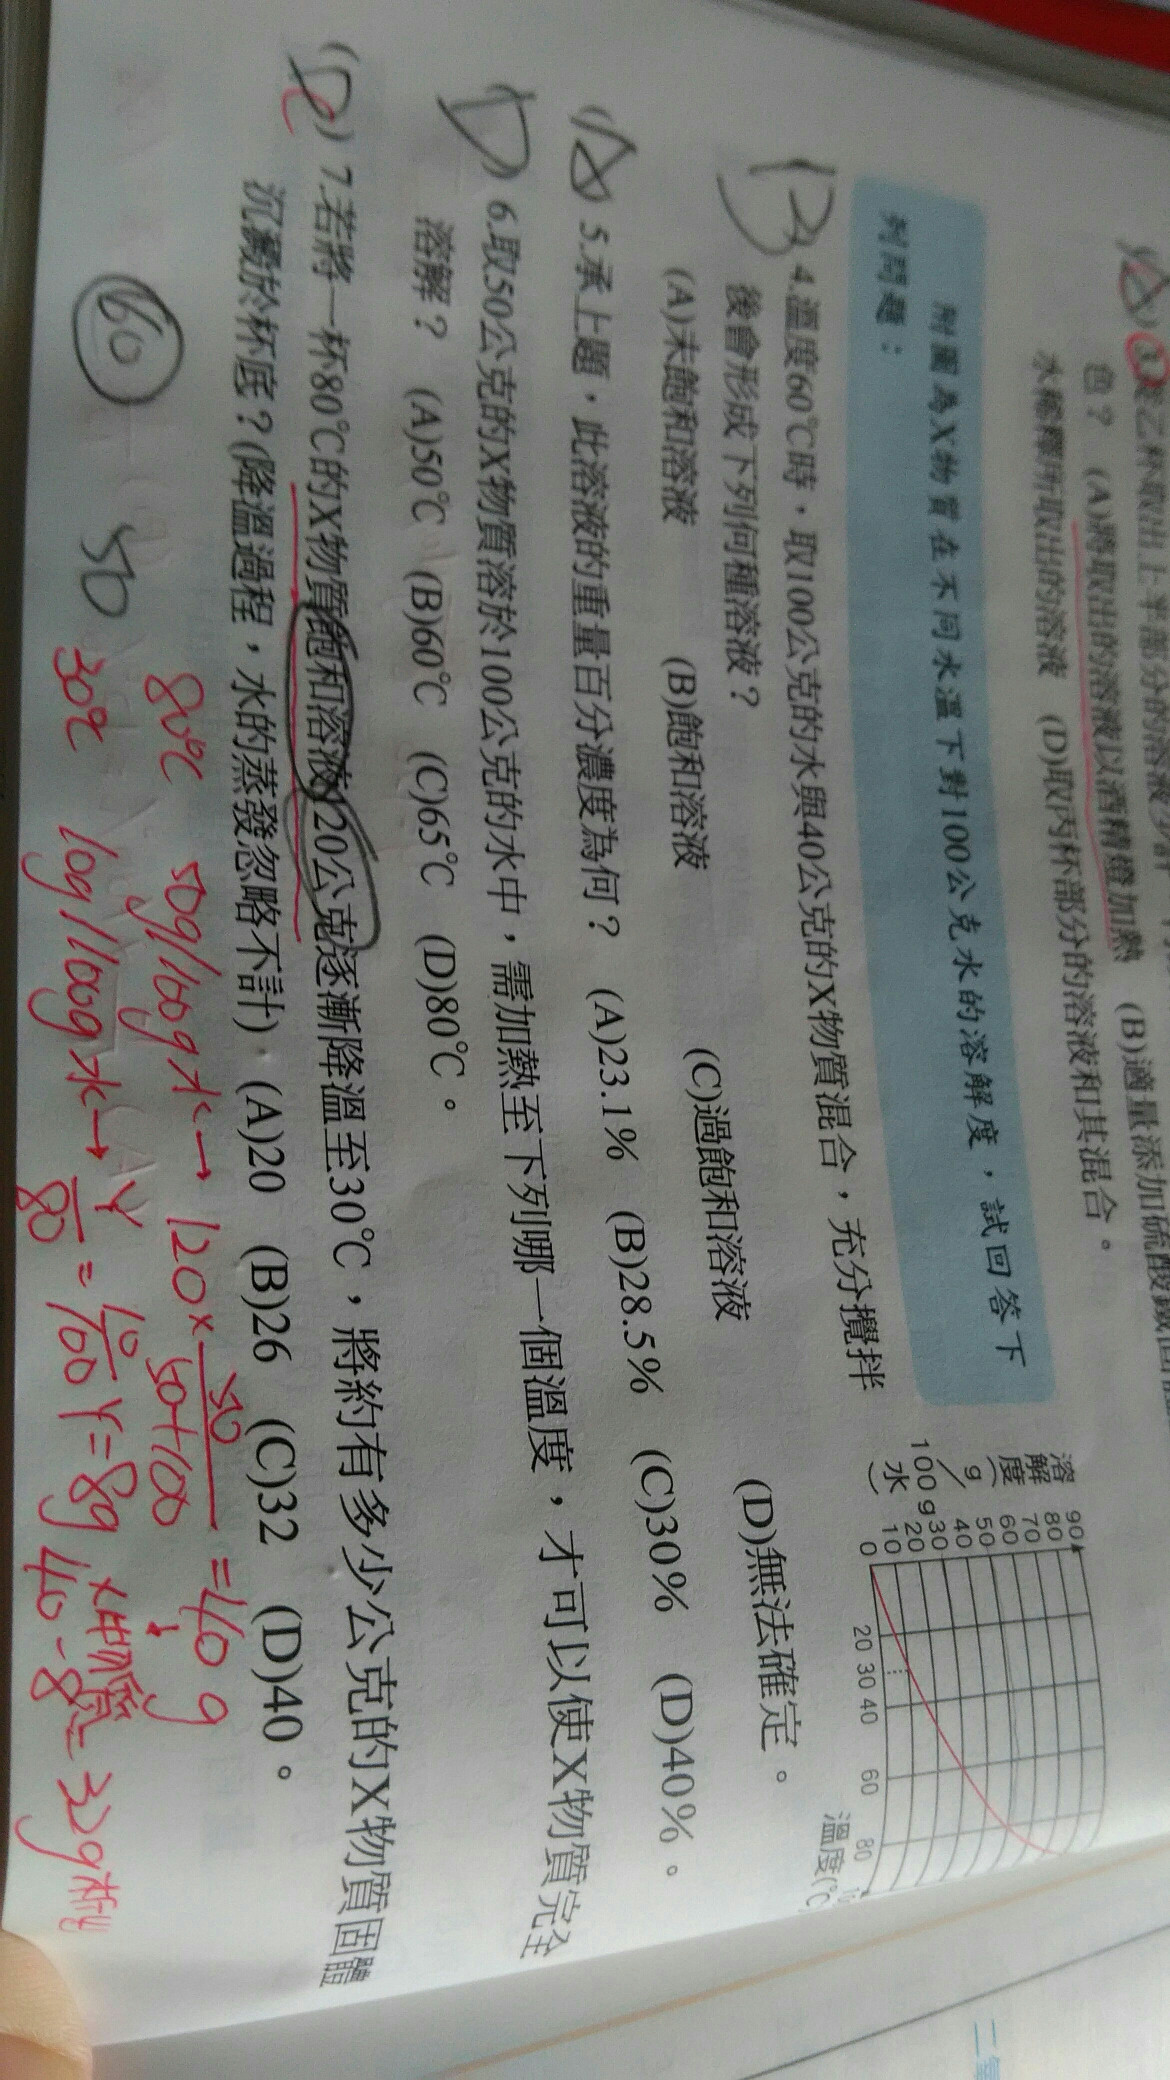 色？ (A)將取出的溶液以酒精燈加熱 (B)適量添加硫酸
水稀釋所取出的溶液 (D)取丙杯部分的溶液和其混合。
附圖為X物質在不同水溫下對100公克水的溶解度，試回答下
列問題：
溶解度(g/100g水)
90
80
70
60
50
40
30
20
10
0
20 30 40 60 80
溫度(℃
(B) 4.溫度60℃時，取100公克的水與40公克的X物質混合，充分攪拌
後會形成下列何種溶液？
(A)未飽和溶液 (B)飽和溶液 (C)過飽和溶液 (D)無法確定。
5.承上題，此溶液的重量百分濃度為何？ (A)23.1% (B)28.5% (C)30% (D)40%。
D) 6.取50公克的X物質溶於100公克的水中，需加熱至下列哪一個溫度，才可以使X物質完全
溶解？ (A)50℃ (B)60℃ (C)65℃ (D)80℃。
7.若將一杯80℃的X物質飽和溶液120公克逐漸降溫至30℃，將約有多少公克的X物質固體
沉澱於杯底？(降溫過程，水的蒸發忽略不計)。 (A)20 (B)26 (C)32 (D)40。
80℃ 50g/100g水→ 120×50/50+100=40g
X物質
60 50 30℃ 10g/100g水→ Y/80=10/100 Y=8g 40-8=32g析出